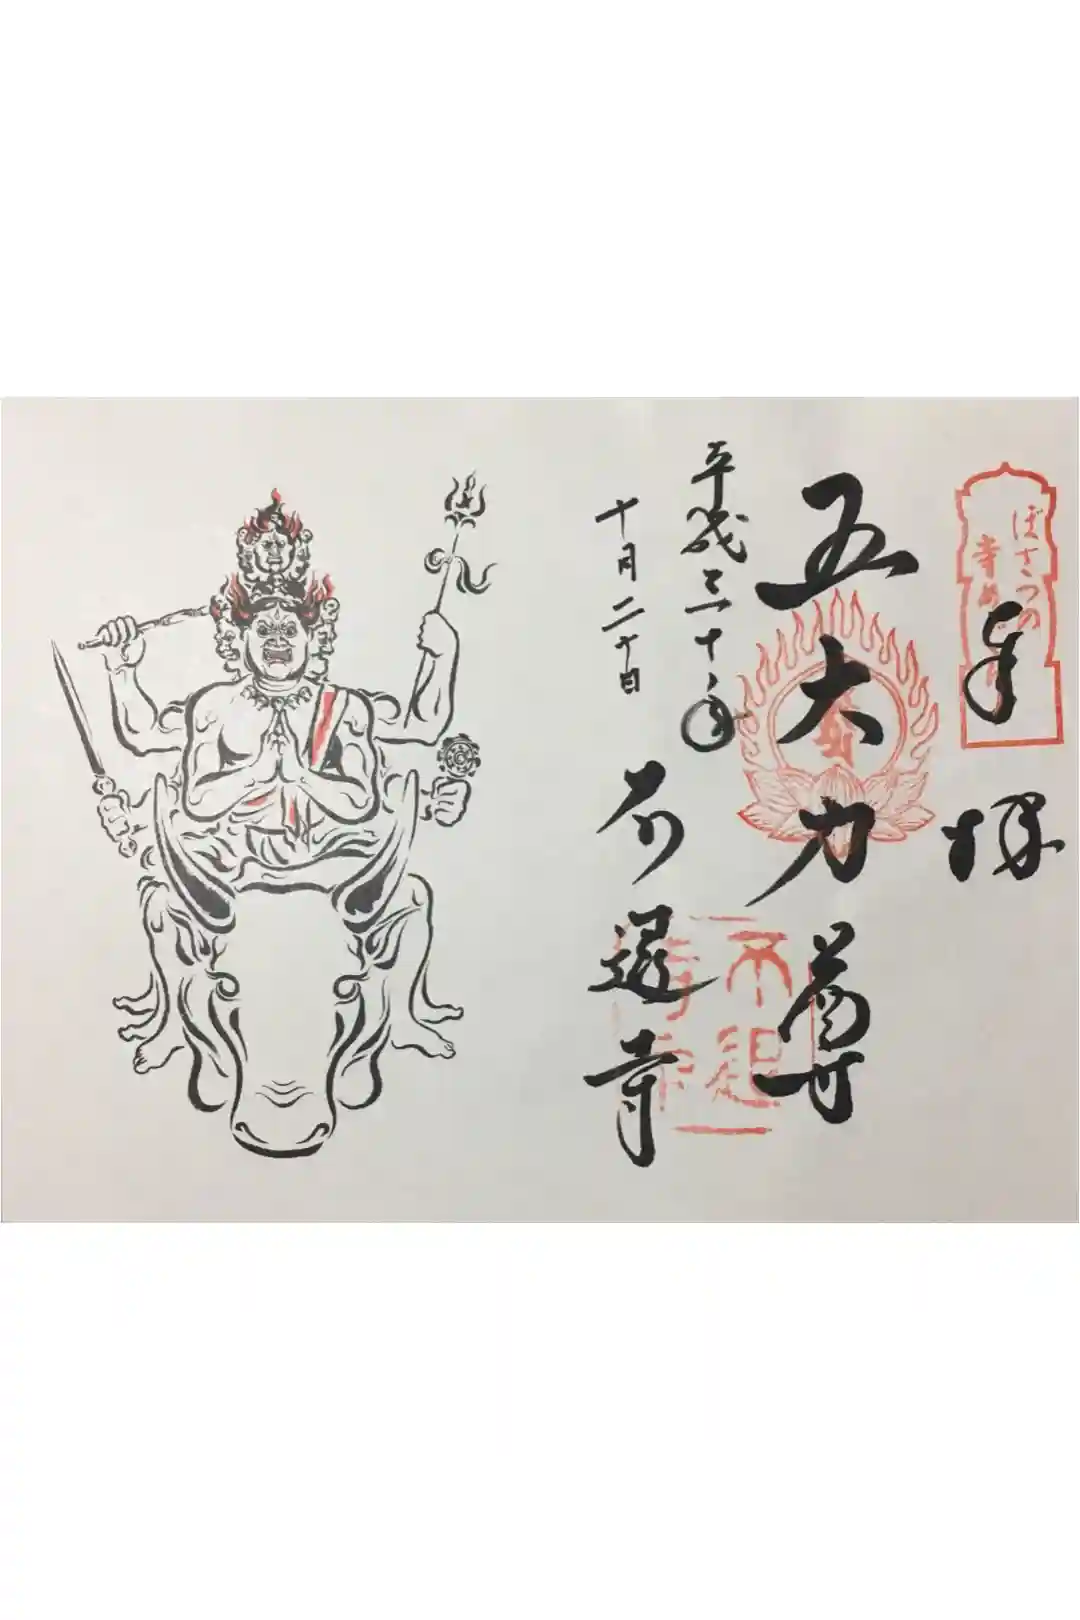 ぼさつの
寺め
奉拝
五大力尊
平成三十年
十月二十日
不退寺
不退